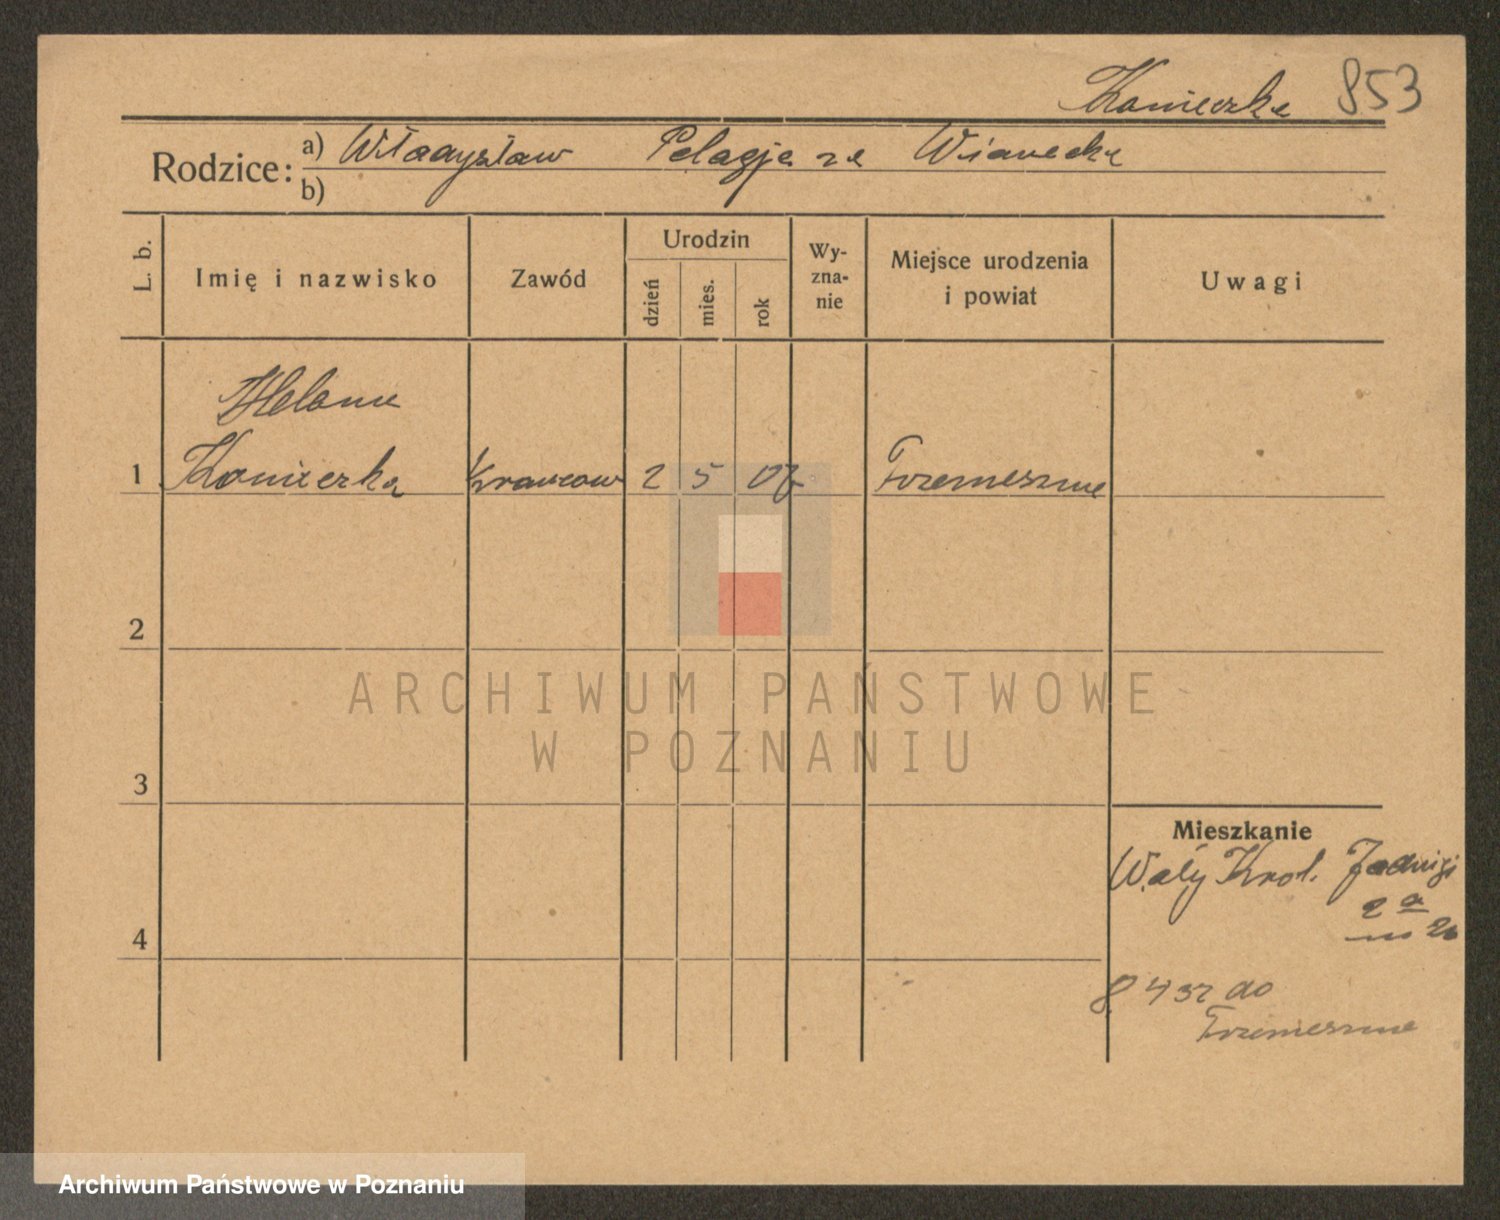 Konieczka 853
Rodzice: a) Władysław Pelagja ze Wianecka
b)
L. b. Imię i nazwisko Zawód Urodzin dzień mies. rok Wy-zna-nie Miejsce urodzenia i powiat Uwagi
Helena
1 Konieczka Krawcow 2 5 07 Trzemeszno
2
ARCHIWUM PAŃSTWOWE
W POZNANIU
3
Mieszkanie
Wały Król. Jadwigi
2 a
m 2
4
8 4 37 do
Trzemeszno
Archiwum Państwowe w Poznaniu